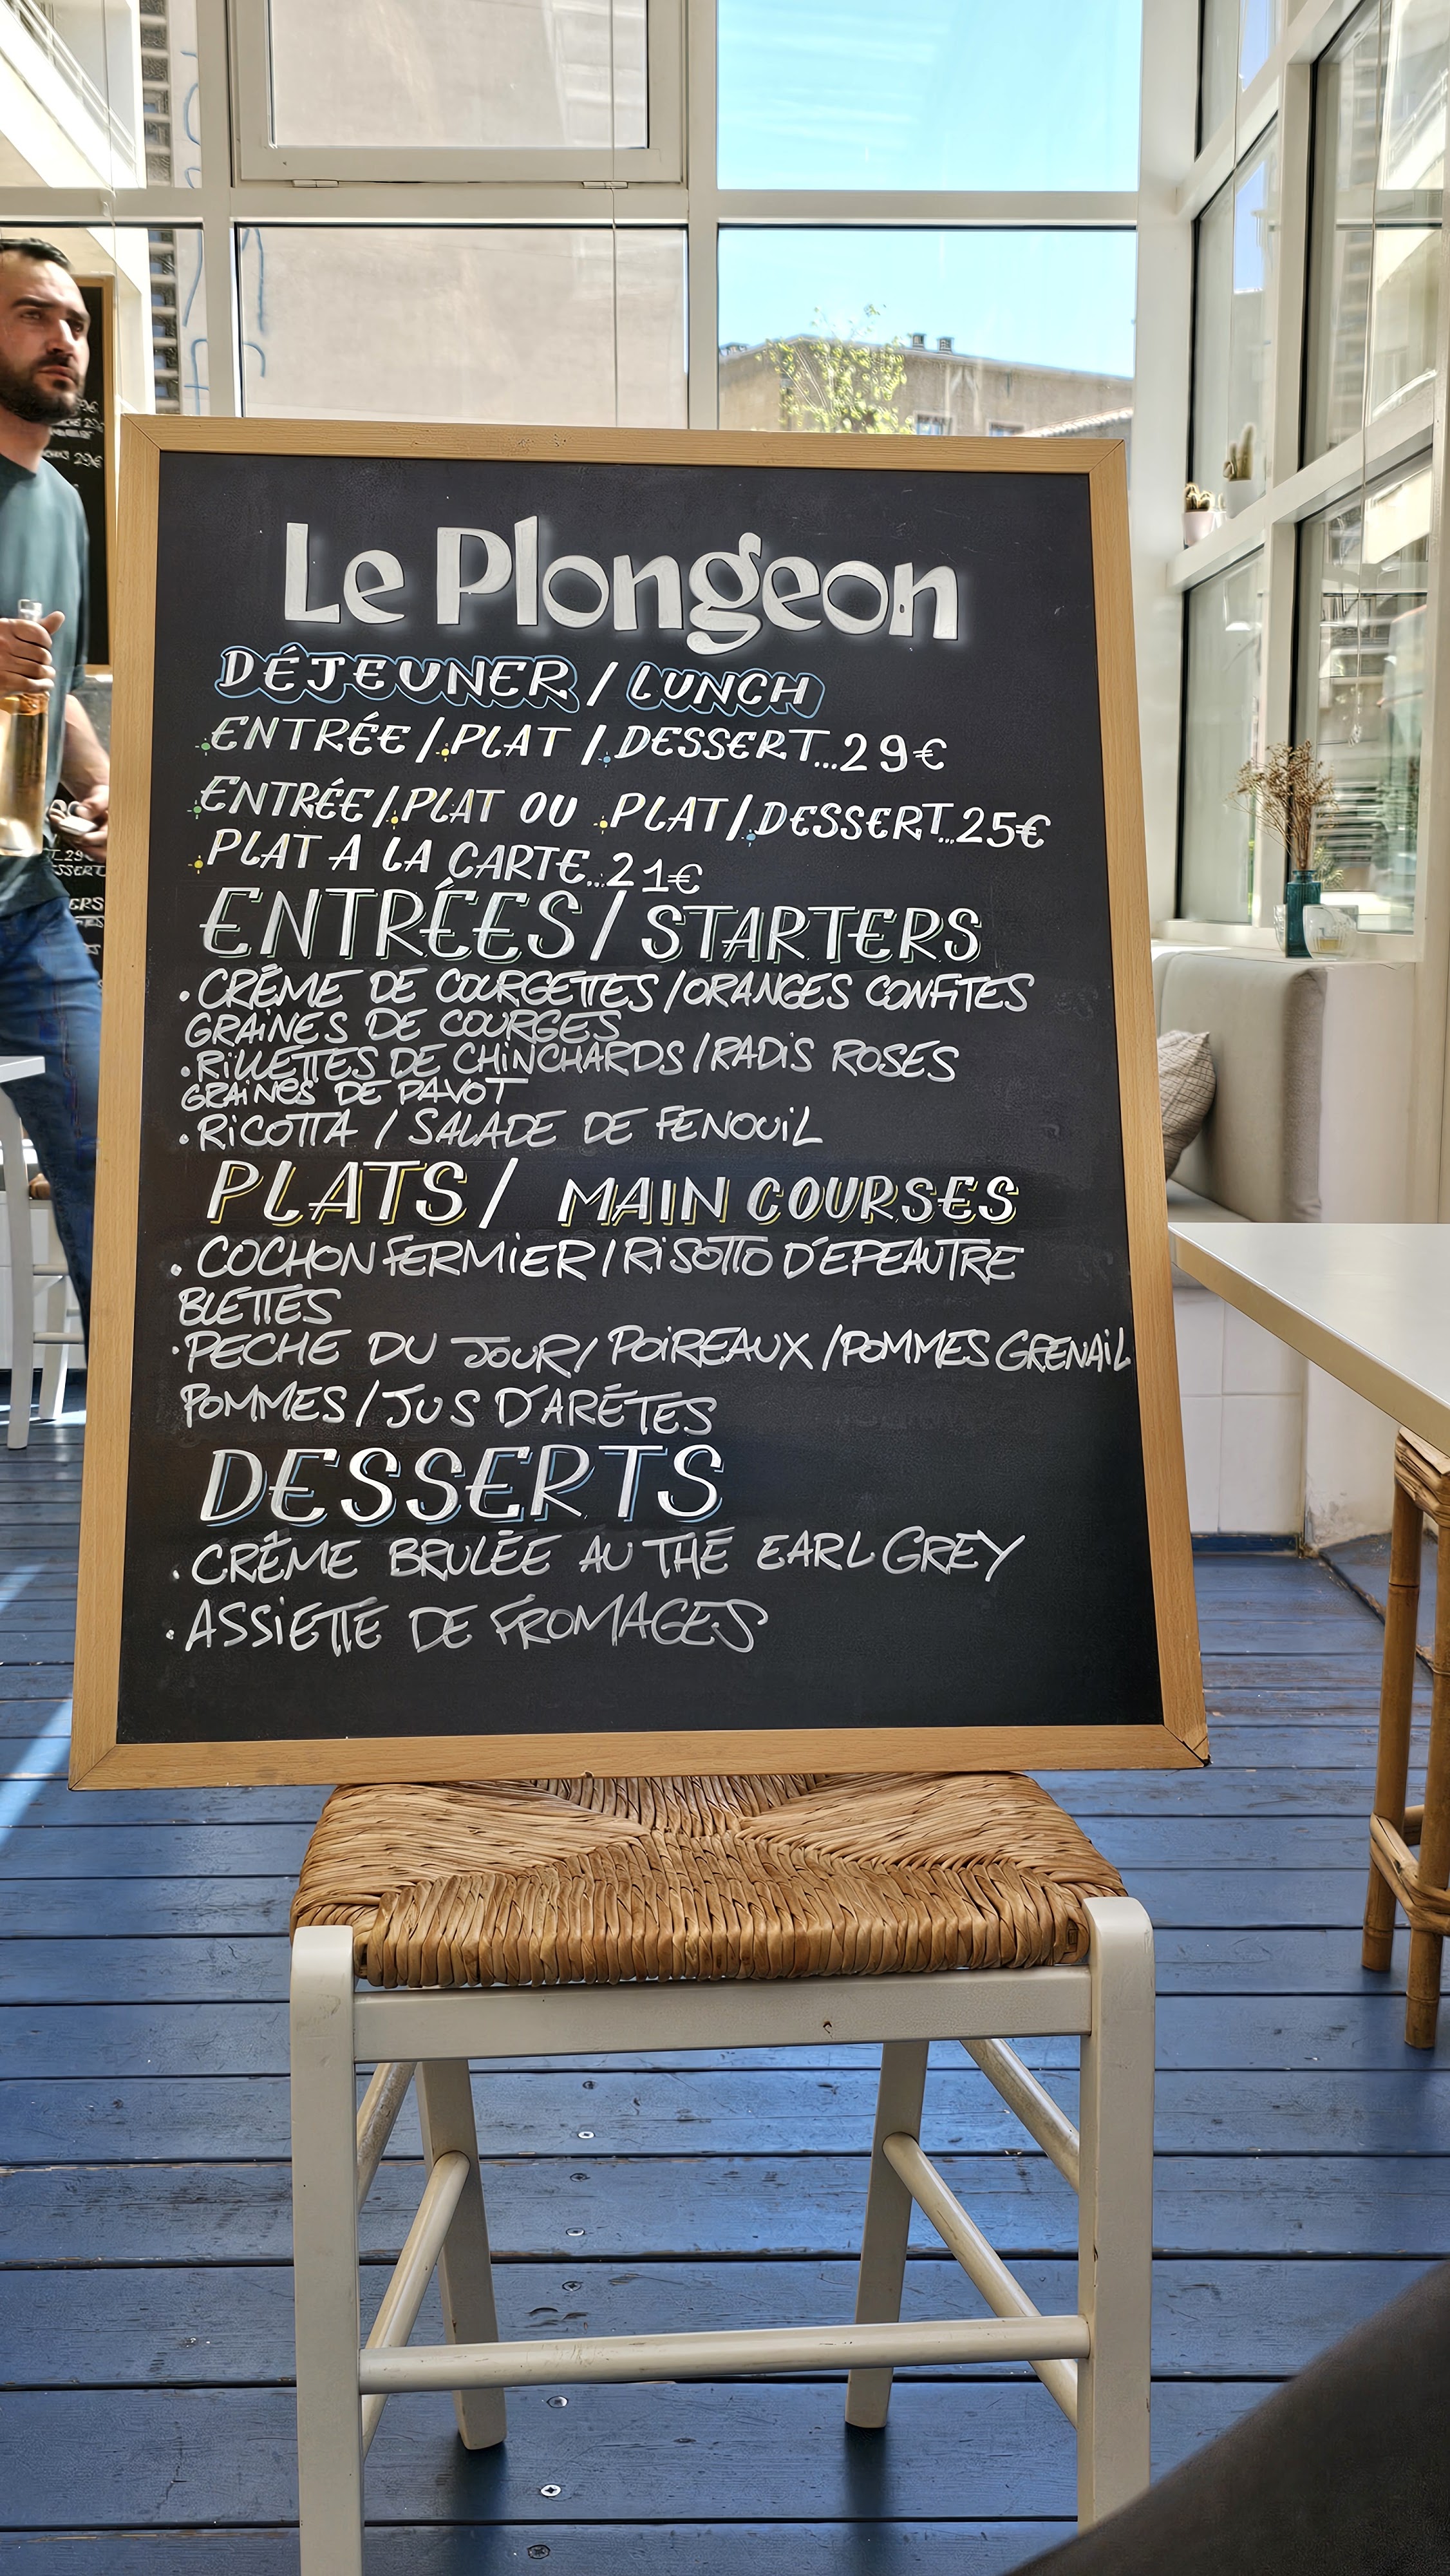 Le Plongeon
DÉJEUNER / LUNCH
ENTRÉE / PLAT / DESSERT...29€
ENTRÉE / PLAT OU PLAT / DESSERT...25€
PLAT A LA CARTE...21€
ENTRÉES / STARTERS
• CRÈME DE COURGETTES / ORANGES CONFITES
GRAINES DE COURGES
• RILLETTES DE CHINCHARDS / RADIS ROSES
GRAINES DE PAVOT
• RICOTTA / SALADE DE FENOUIL
PLATS / MAIN COURSES
• COCHON FERMIER / RISOTTO D'EPEAUTRE
BLETTES
• PECHE DU JOUR / POIREAUX / POMMES GRENAIL
POMMES / JUS D'ARÊTES
DESSERTS
• CRÊME BRULÉE AU THÉ EARL GREY
• ASSIETTE DE FROMAGES